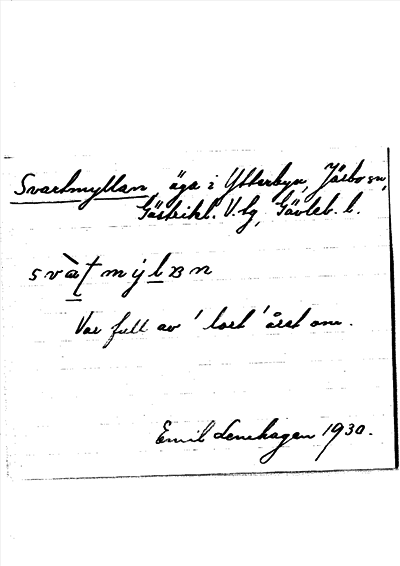 Svartmyllan, äga i Ytterbyn, Järbo sn,
Gästrikl. V. tg, Gävleb. l.
svàʈ mý l ʙ n
Var full av 'lort' årst om.
Emil Lenhagen 1930.